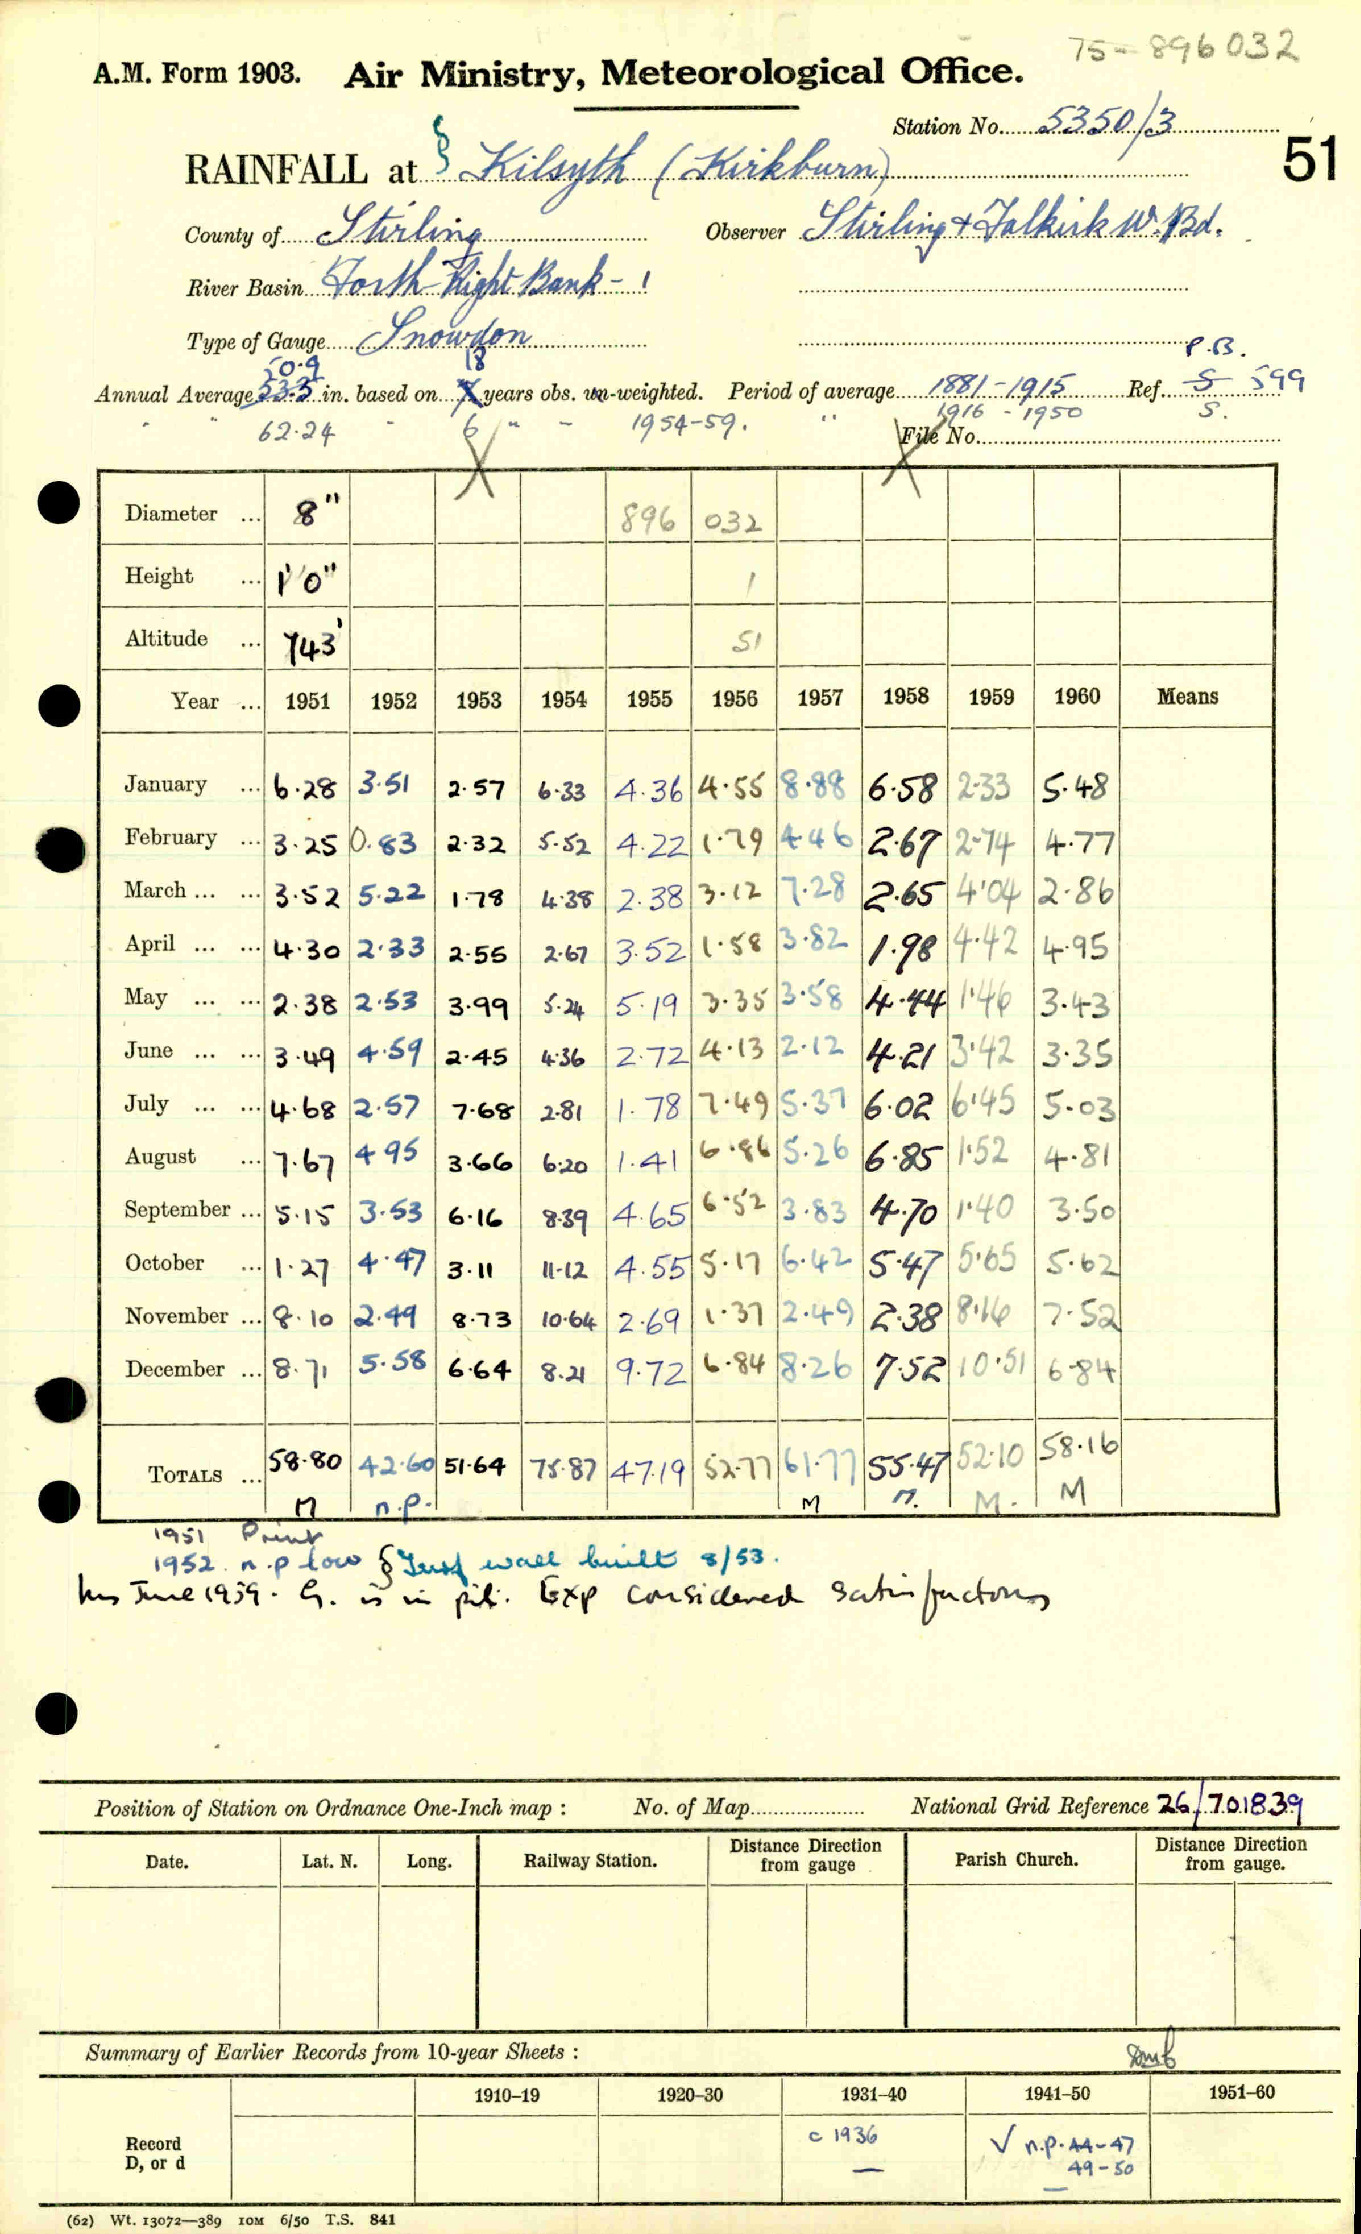 75-896032
A.M. Form 1903. Air Ministry, Meteorological Office.
Station No. 5350/3
51
RAINFALL at § Kilsyth (Kirkburn)
County of Stirling Observer Stirling & Falkirk W. Bd.
River Basin Forth Right Bank - 1
Type of Gauge Snowdon
50.9 18 P.B.
Annual Average 53.5 in. based on 7 years obs. un-weighted. Period of average 1881-1915 Ref. S 599
" " 62.24 " 6 " " 1954-59. " 1916 - 1950 S.
File No.
Diameter ... 8" 896 032
Height ... 1'0" 1
Altitude ... 743' 51
Year ... 1951 1952 1953 1954 1955 1956 1957 1958 1959 1960 Means
January ... 6.28 3.51 2.57 6.33 4.36 4.55 8.88 6.58 2.33 5.48
February ... 3.25 0.83 2.32 5.52 4.22 1.79 4.46 2.67 2.74 4.77
March ... ... 3.52 5.22 1.78 4.38 2.38 3.12 7.28 2.65 4.04 2.86
April ... ... 4.30 2.33 2.55 2.67 3.52 1.58 3.82 1.98 4.42 4.95
May ... ... 2.38 2.53 3.99 5.24 5.19 3.35 3.58 4.44 1.46 3.43
June ... ... 3.49 4.59 2.45 4.36 2.72 4.13 2.12 4.21 3.42 3.35
July ... ... 4.68 2.57 7.68 2.81 1.78 7.49 5.37 6.02 6.45 5.03
August ... 7.67 4.95 3.66 6.20 1.41 6.86 5.26 6.85 1.52 4.81
September ... 5.15 3.53 6.16 8.39 4.65 6.52 3.83 4.70 1.40 3.50
October ... 1.27 4.47 3.11 11.12 4.55 5.17 6.42 5.47 5.65 5.62
November ... 8.10 2.49 8.73 10.64 2.69 1.37 2.49 2.38 8.16 7.52
December ... 8.71 5.58 6.64 8.21 9.72 6.84 8.26 7.52 10.51 6.84
TOTALS ... 58.80 42.60 51.64 75.87 47.19 52.77 61.77 55.47 52.10 58.16
M n.p. M M. M. M
1951 Print
1952. n.p low § Turf wall built 8/53.
Ins June 1959. G. is in pit. Exp considered satisfactory
Position of Station on Ordnance One-Inch map : No. of Map National Grid Reference 26/701839
Date. Lat. N. Long. Railway Station. Distance Direction from gauge Parish Church. Distance Direction from gauge.
Summary of Earlier Records from 10-year Sheets :
1910-19 1920-30 1931-40 1941-50 1951-60
Record D, or d c 1936 — √ n.p. 44-47
49-50
—
(62) Wt. 13072—389 10M 6/50 T.S. 841